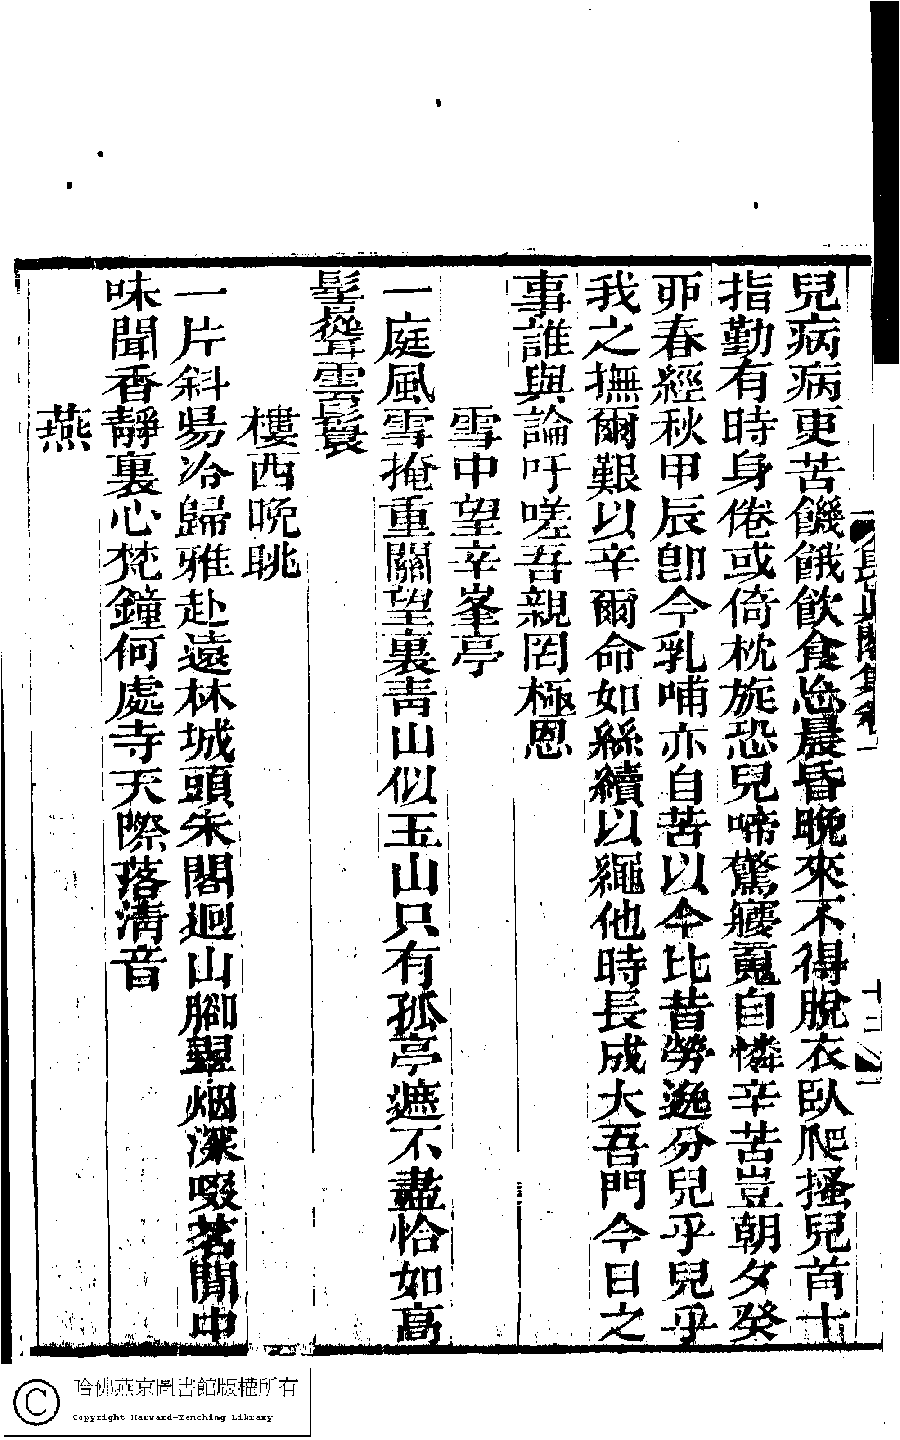 兒病病更苦饑餓飲食迨晨昏晚來不得脫衣臥爬搔兒首十
指勤有時身倦或倚枕旋恐兒啼驚寢寬自憐辛苦豈朝夕癸
卯春經秋甲辰卽今乳哺亦自苦以今比昔勞逸分兒乎兒乎
我之撫爾艱以辛爾命如絲續以繩他時長成大吾門今日之
事誰與論吁嗟吾親罔極恩
雪中望辛峯亭
一庭風雪掩重關望裏青山似玉山只有孤亭遮不盡恰如高
髻聳雲鬟
樓西晚眺
一片斜昜冷歸雅赴遠林城頭朱閣迥山腳翠烟深啜茗閒中
味聞香靜裏心梵鐘何處寺天際落清音
燕
長真閣集卷一
十二
哈佛燕京圖書館版權所有
Copyright Harvard-Yenching Library